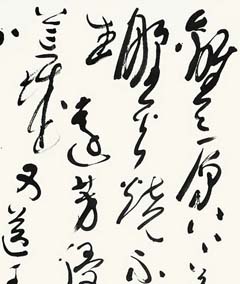 離〻原上
野火燒不
生遠芳侵
荒城又送王